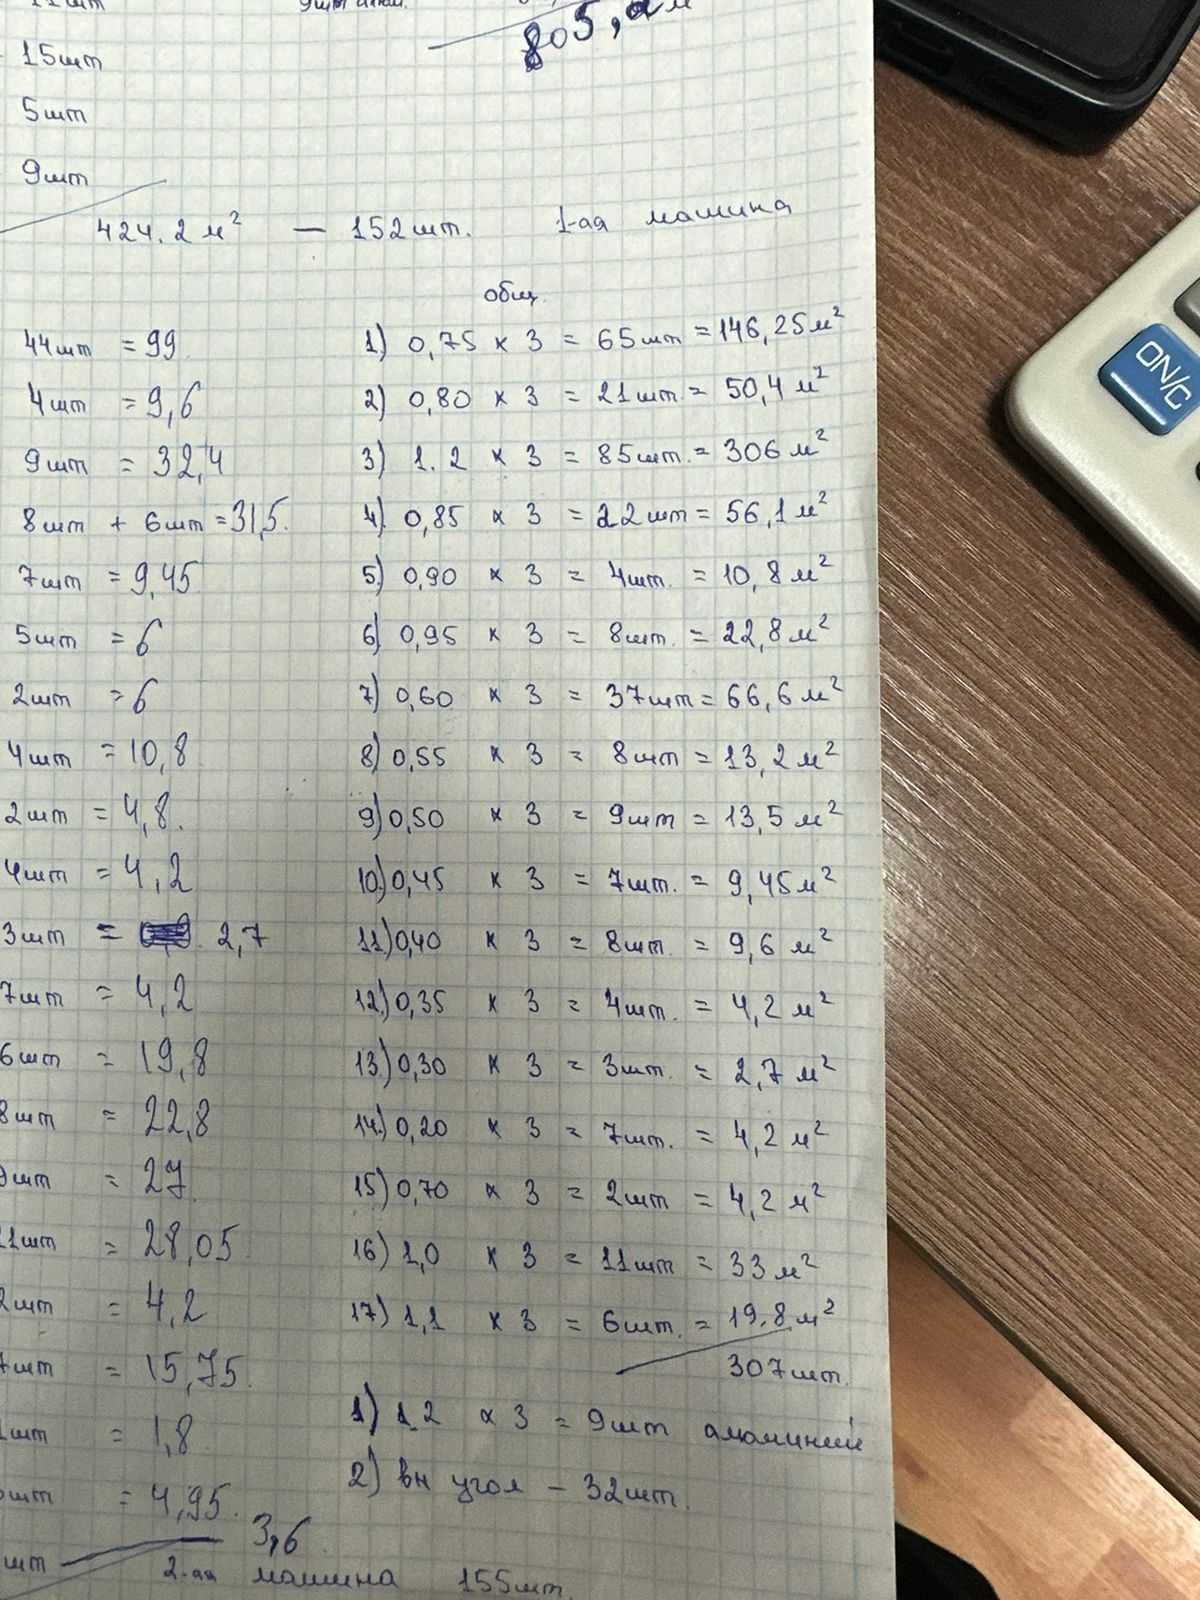 15шт
805,2 м
5шт
9шт
424.2 м² — 152шт. 1-ая машина
общ.
44шт = 99 1) 0,75 x 3 = 65шт = 146,25 м²
4шт = 9,6 2) 0,80 x 3 = 21шт. = 50,4 м²
9шт = 32,4 3) 1.2 x 3 = 85шт. = 306 м²
8шт + 6шт = 31,5. 4) 0,85 x 3 = 22шт = 56,1 м²
7шт = 9,45 5) 0,90 x 3 = 4шт. = 10,8 м²
5шт = 6 6) 0,95 x 3 = 8шт. = 22,8 м²
2шт = 6 7) 0,60 x 3 = 37шт = 66,6 м²
4шт = 10,8 8) 0,55 x 3 = 8шт = 13,2 м²
2шт = 4,8. 9) 0,50 x 3 = 9шт = 13,5 м²
4шт = 4,2 10) 0,45 x 3 = 7шт. = 9,45 м²
3шт = 2,7 11) 0,40 x 3 = 8шт. = 9,6 м²
7шт = 4,2 12) 0,35 x 3 = 4шт. = 4,2 м²
6шт = 19,8 13) 0,30 x 3 = 3шт. = 2,7 м²
8шт = 22,8 14) 0,20 x 3 = 7шт. = 4,2 м²
шт = 27. 15) 0,70 x 3 = 2шт = 4,2 м²
11шт = 28,05. 16) 1,0 x 3 = 11шт = 33 м²
2шт = 4,2 17) 1,1 x 3 = 6шт. = 19.8 м²
7шт = 15,75. 307шт.
1шт = 1,8. 1) 1.2 x 3 = 9шт алюминий
шт = 4,95. 2) вн угол – 32шт.
шт 3,6
2-ая машина 155шт.
ON/C